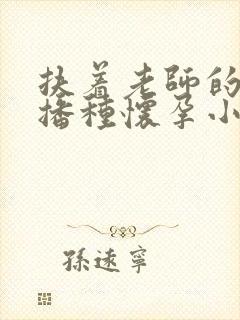 扶着老師的
播種懷孕小
孫遠寧